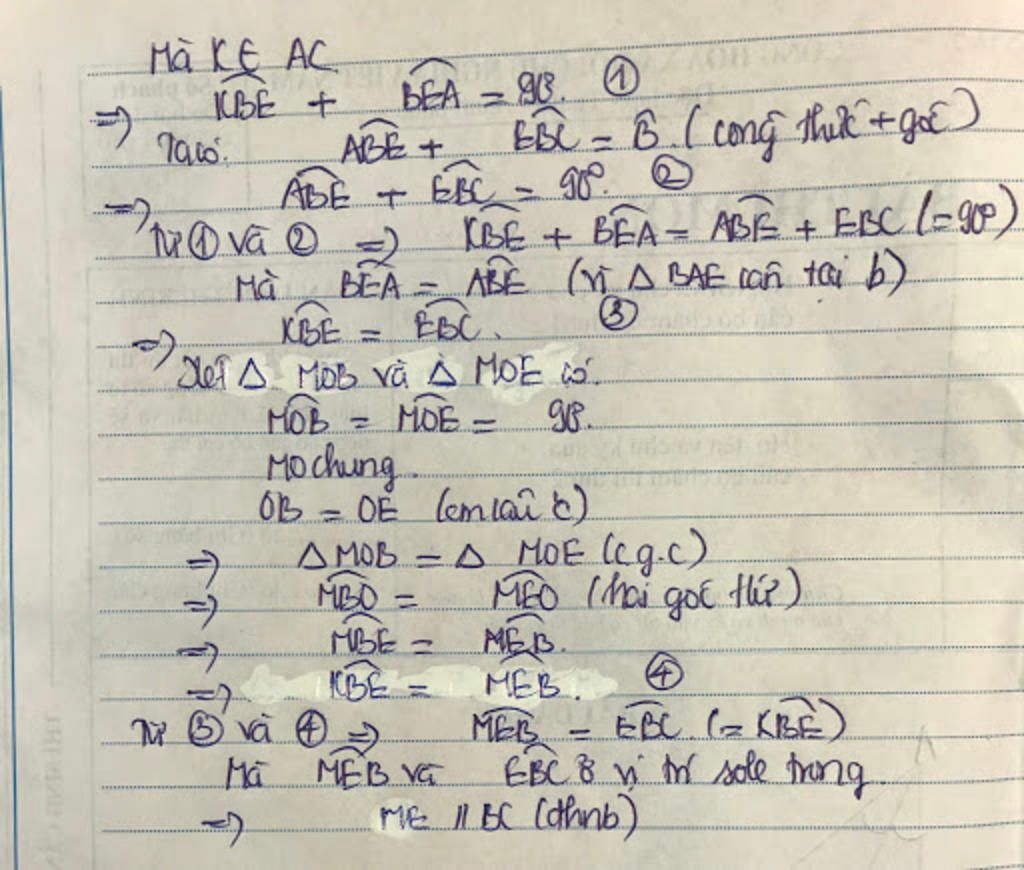 Mà K∈ AC
=> KBE + BEA = 90°. ①
Ta có: ABE + EBC = B. (công thức + góc)
=> ABE + EBC = 90°. ②
Từ ① và ② => KBE + BEA = ABE + EBC (= 90°)
Mà BEA = ABE (vì Δ BAE cân tại b)
=> KBE = EBC. ③
Xét Δ MOB và Δ MOE có.
MOB = MOE = 90°.
MO chung.
OB = OE (cm câu c)
=> Δ MOB = Δ MOE (c.g.c)
=> MBO = MEO (hai góc t/ứ)
=> MBE = MEB.
=> KBE = MEB. ④
Từ ③ và ④ => MEB = EBC. (= KBE)
Mà MEB và EBC ở vị trí sole trong.
=> ME // BC (dhnb)